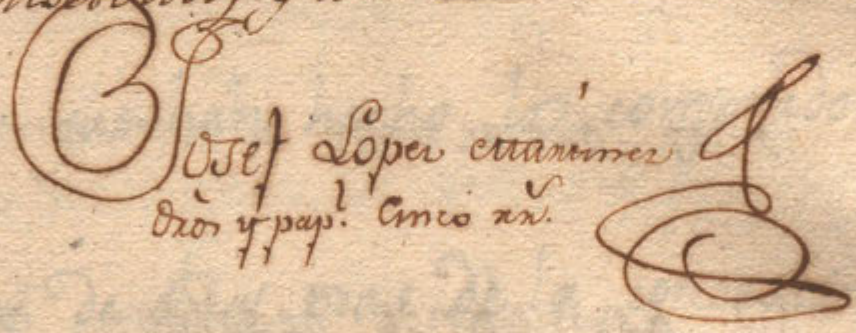 Josef Lopez Martinez
dros y papl. Cinco rrs.